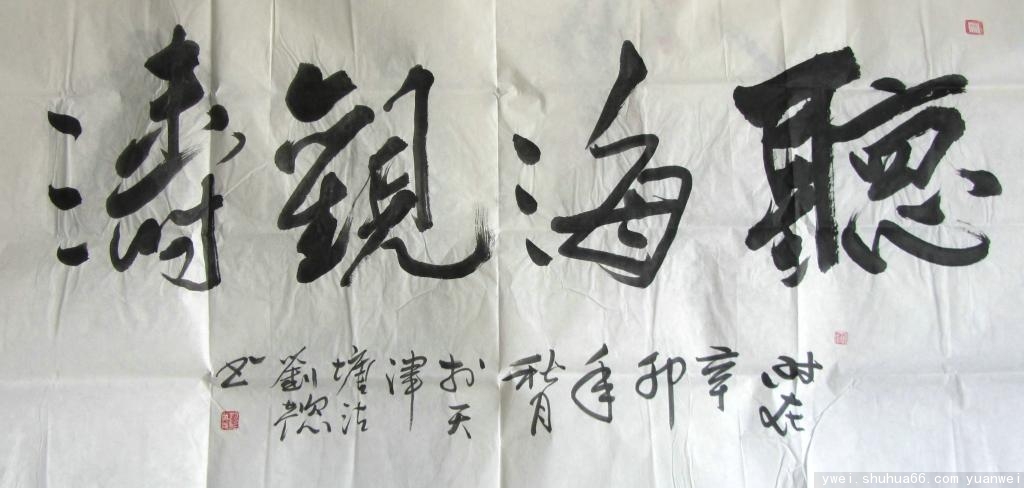 聽海觀濤
時在辛卯年秋月於天津塘沽劉懿書
ywei.shuhua66.com yuanwei